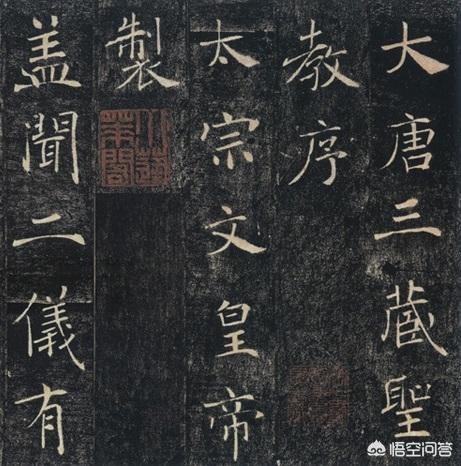 大唐三藏聖
教序
太宗文皇帝
製
盖聞二儀有
悟空问答